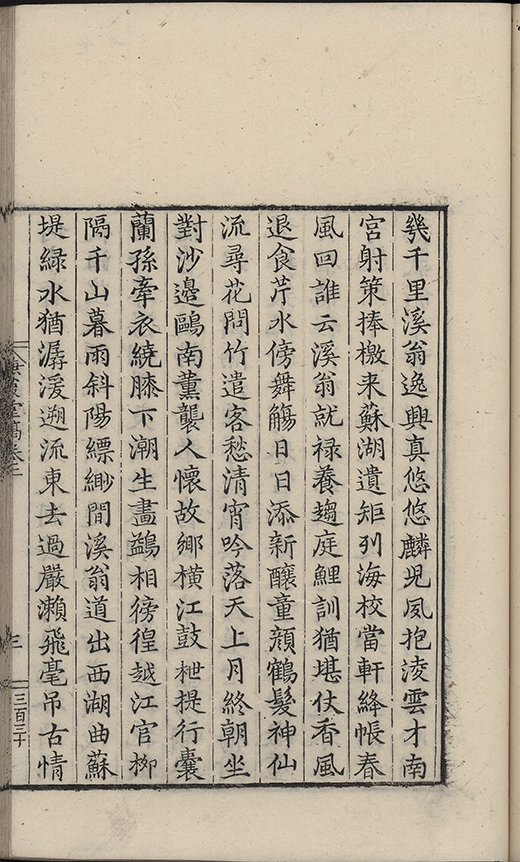 幾千里溪翁逸興真悠悠麟児鳳抱淩雲才南
宮射策捧檄来蘇湖遺矩列海校當軒絳帳春
風回誰云溪翁就禄養趨庭鯉訓猶堪仗香風
退食芹水傍舞觴日日添新釀童顔鶴髮神仙
流尋花問竹遣客愁清宵吟落天上月終朝坐
對沙邊鷗南薰襲人懷故鄉橫江鼓枻提行囊
蘭孫牽衣繞膝下潮生畫鷁相徬徨越江官柳
隔千山暮雨斜陽縹緲間溪翁道出西湖曲蘇
堤緑水猶潺湲遡流東去過嚴瀨飛毫吊古情
三
三百三十